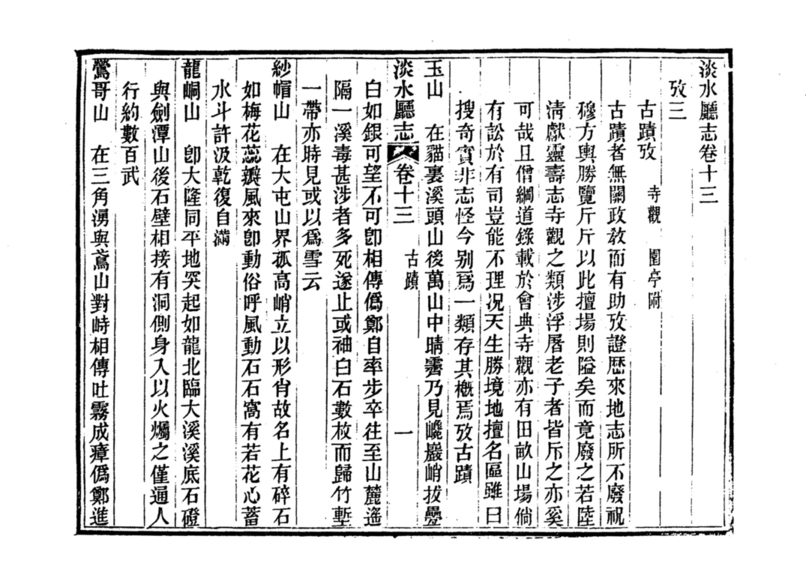 淡水廳志卷十三
攷三
古蹟攷 寺觀 園亭附
古蹟者無關政敎而有助攷證歷來地志所不廢祝
穆方輿勝覽斤斤以此擅場則隘矣而竟廢之若陸
淸獻靈壽志寺觀之類涉浮屠老子者皆斥之亦奚
可哉且僧綱道錄載於會典寺觀亦有田畝山場倘
有訟於有司豈能不理况天生勝境地擅名區雖曰
搜奇實非志怪今别爲一類存其槪焉攷古蹟
玉山 在貓裏溪頭山後萬山中晴霽乃見巉巖峭拔疊
淡水廳志 卷十三 古蹟 一
白如銀可望不可卽相傳僞鄭自率步卒往至山麓遙
隔一溪毒甚涉者多死遂止或袖白石數枚而歸竹塹
一帶亦時見或以爲雪云
紗帽山 在大屯山界孤高峭立以形肖故名上有碎石
如梅花蕊瓣風來卽動俗呼風動石石窩有若花心蓄
水斗許汲乾復自滿
龍峒山 卽大隆同平地突起如龍北臨大溪溪底石磴
與劍潭山後石壁相接有洞側身入以火燭之僅通人
行約數百武
鶯哥山 在三角湧與鳶山對峙相傳吐霧成瘴僞鄭進